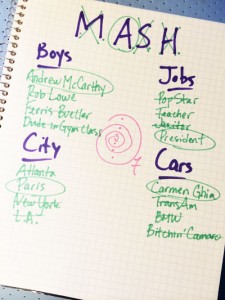 MASH
Boys
Andrew McCarthy
Rob Lowe
Ferris Bueller
Dude in Gym Class
Jobs
Pop Star
Teacher
Janitor
President
7
City
Atlanta
Paris
New York
L.A.
Cars
Carmen Ghia
TransAm
BMW
Bitchin' Camaro